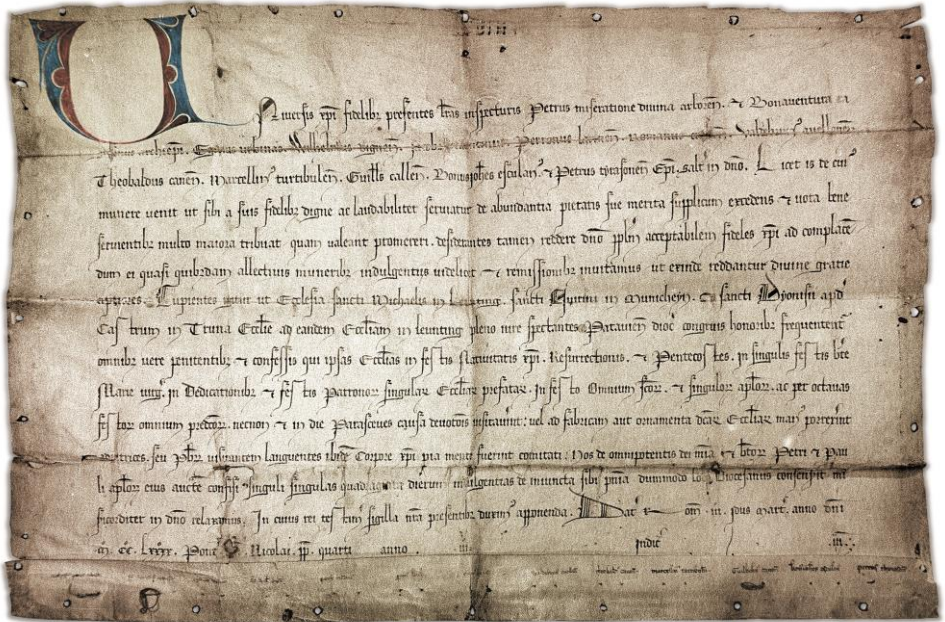 Uniuersis xpi fidelibz presentes lras inspecturis Petrus miseratione diuina arboren. et Bonauentura
archiepi. Egidius urbinas. Petronus larinen. Romanus Waldebrun auellonen
Theobaldus canen. Marcellin turtibulen. Guills callen. Bonusiohes esculan. et Petrus tyrasonen Epi. salt in dno. Licet is de cui
munere venit ut sibi a suis fidelibz digne ac laudabiliter seruiatur de abundantia pietatis sue merita supplicum excedens et uota bene
seruientibz multo maiora tribuat quam valeant promereri. desiderantes tamen reddere dno pplm acceptabilem fideles xpi ad complacen
dum ei quasi quibzdam allectiuis muneribz indulgentiis videlicet et remissionibz inuitamus ut exinde reddantur diuine gratie
aptiores. Cupientes igitur ut Ecclesia sancti Michaelis in Leunting. sancti Quirini in Munichem. et sancti Dionisii apd
Castrum in Truna Ecclie ad eandem Eccliam in leunting pleno iure spectantes Patauien dioc congruis honoribz frequentent
omnibz vere penitentibz et confessis qui ipsas Ecclias in festis Natiuitatis xpi. Resurrectionis. et Pentecostes. in singulis festis bte
Marie uirg. in Dedicationibz et festis Patronoꝝ singulaꝝ Eccliaꝝ prefataꝝ. In festo Omnium scoꝝ. et singuloꝝ aploꝝ. ac per octauas
festoꝝ omnium predcoꝝ. necnon et in die Parasceues causa deuotois uisitauint. uel ad fabricam aut ornamenta dcaꝝ Eccliaꝝ man porrexint
adiutrices. seu Pbrm uisitantem languentes ibidem Corpore xpi pia mente fuerint comitati. Nos de omnipotentis dei mia et btoꝝ Petri et Pau
li aploꝝ eius aucte confisi singuli singulas quadraginta dierum indulgentias de iniuncta sibi pnia dummodo loci Diocesanus consenserit mi
sericorditer in dno relaxamus. In cuius rei testim sigilla nra presentibz duxim apponenda. Dat Rome .iii. idus Mart. anno dni
m. cc. lxxxx. Pont Nicolai. pp. quarti anno .iii. Indic .iii.